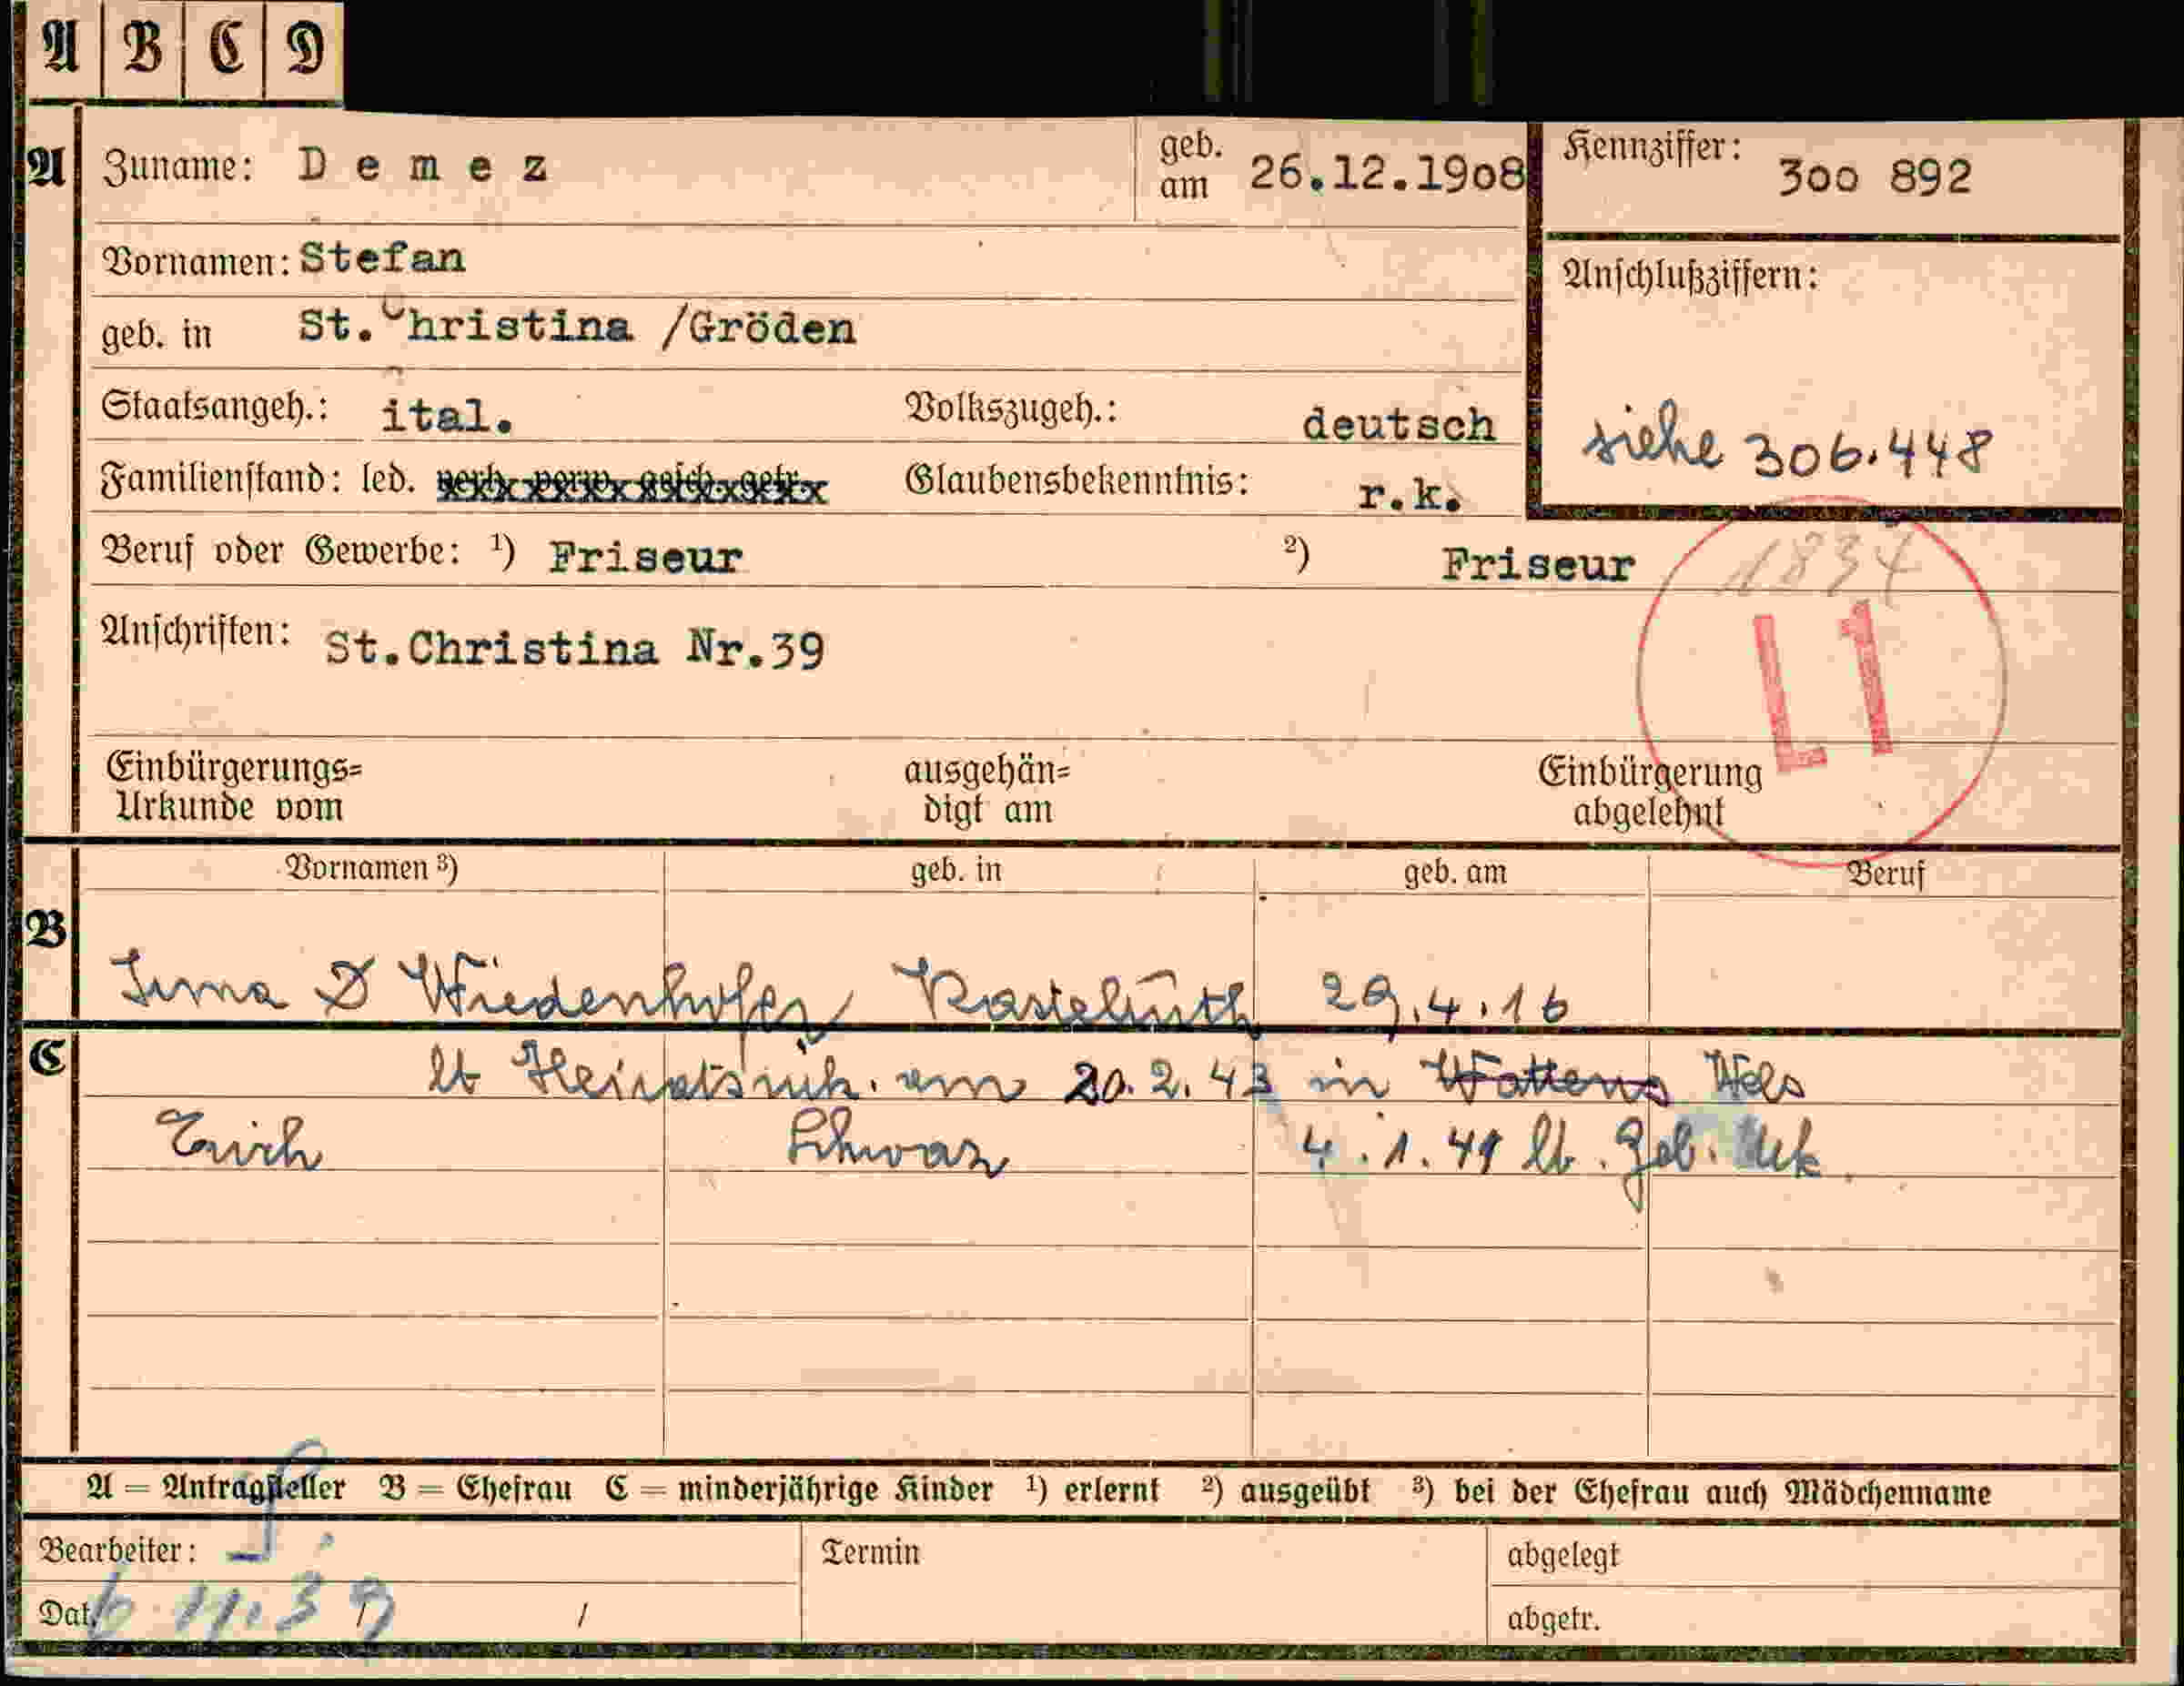 A B C D
A Zuname: Demez geb. am 26.12.1908 Kennziffer: 300 892
Vornamen: Stefan
Anschlußziffern:
geb. in St.Christina /Gröden
Staatsangeh.: ital. Volkszugeh.: deutsch
siehe 306.448
Familienstand: led. verh. verw. gesch. getr. Glaubensbekenntnis: r.k.
Beruf oder Gewerbe: ¹) Friseur ²) Friseur
1834
Anschriften: St.Christina Nr.39
L1
Einbürgerungs=
Urkunde vom
ausgehän=
digt am
Einbürgerung
abgelehnt
Vornamen ³) geb. in geb. am Beruf
B
Irma D Wiedenhofer Kastelruth 29.4.16
C
lt Heiratsurk. am 20.2.43 in Wattens Wels
Erich Schwaz 4.1.41 lt. Geb. Urk.
A = Antragsteller B = Ehefrau C = minderjährige Kinder ¹) erlernt ²) ausgeübt ³) bei der Ehefrau auch Mädchenname
Bearbeiter: Termin abgelegt
Dat. 6.11.39 / / abgetr.